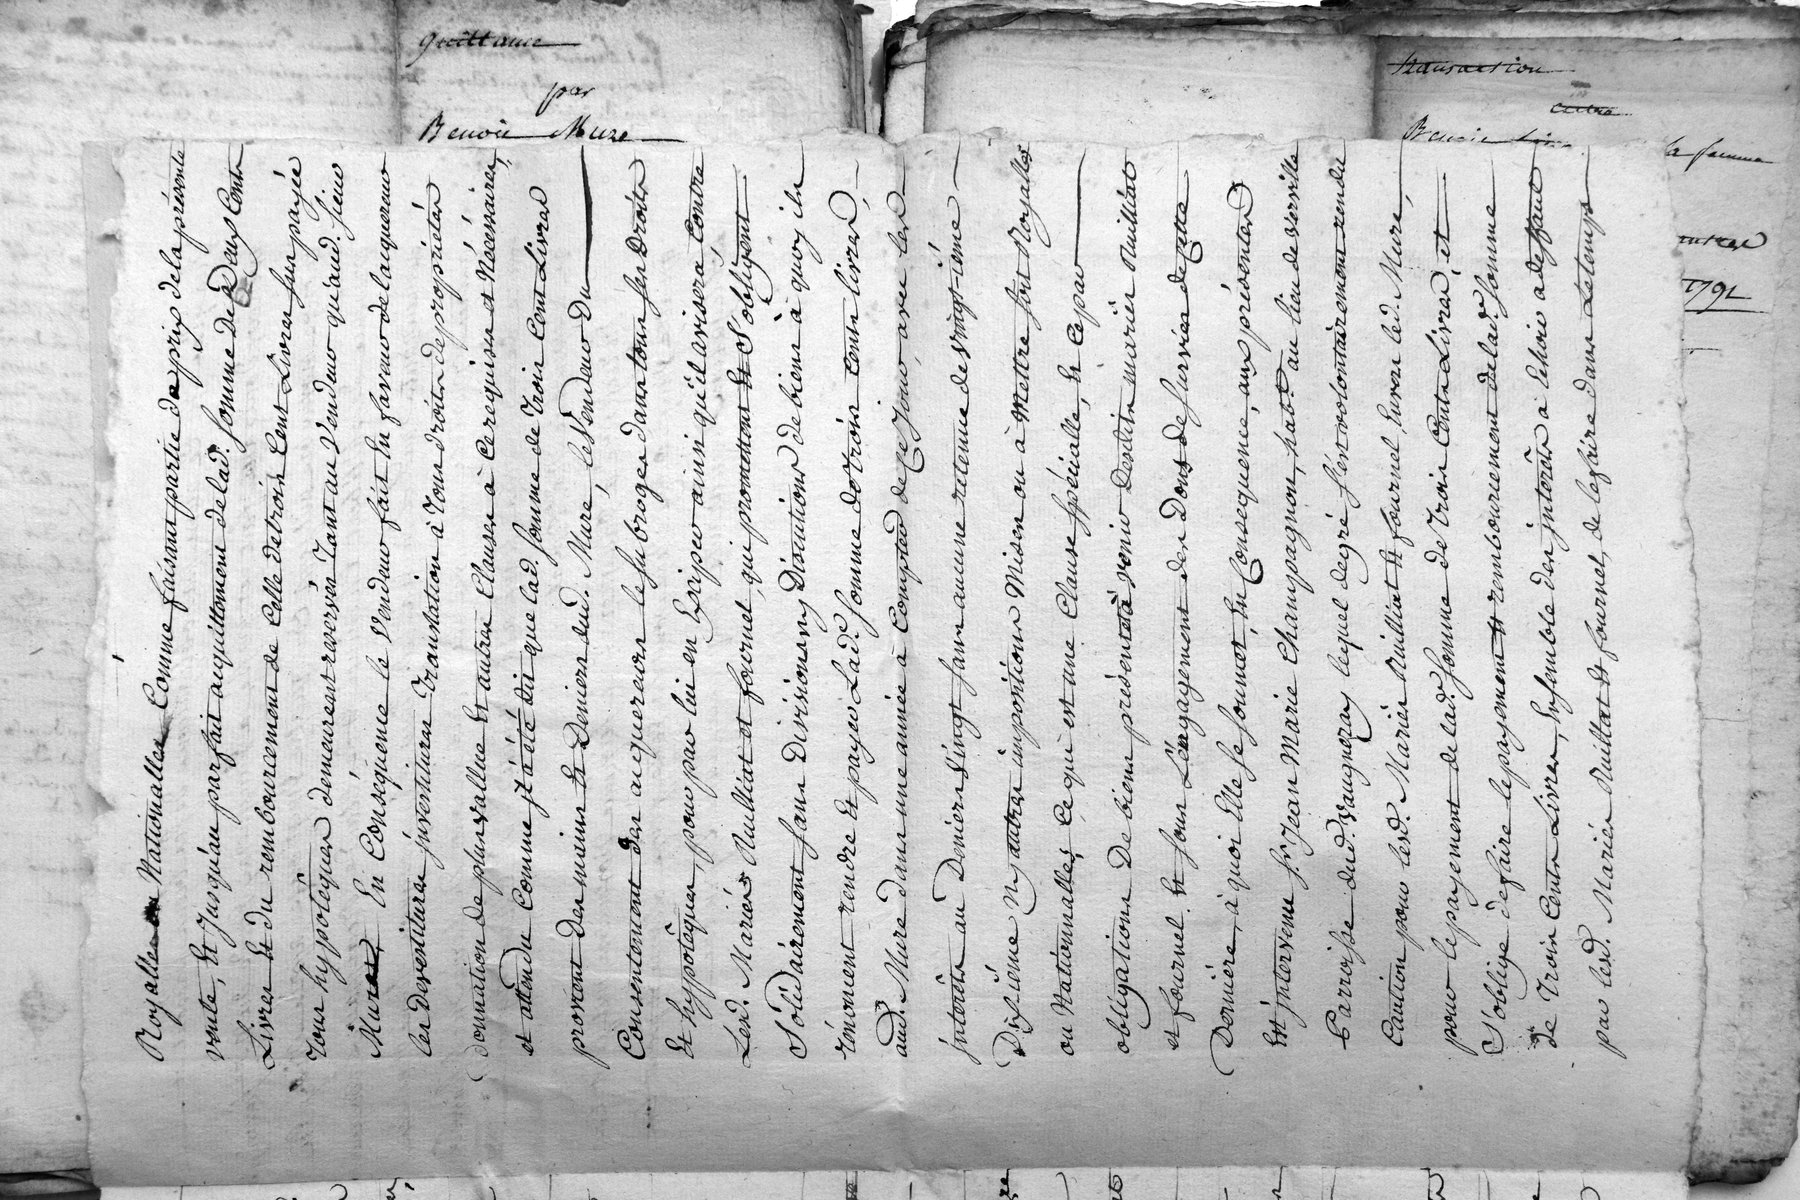 quittance
par
Benoit Mure
transaction
entre
Benoit
la femme
1791
Royalles ou Nationalles Comme faisant partie du prix de la présente
vente, Et Jusqu'au parfait acquittement de lad. somme de Deux Cents
Livres Et du remboursement de Celle de trois Cent Livres sus payée
tous hypotêques demeurent reservés Tant au Vendeur qu'aud. sieur
Mure, En Conséquence le Vendeur fait En faveur de l'acquereur
les devestitures, jnvestitures, translation de tous droits de propriétés
donnation de plus vallue Et autres Clauses à Ce requises et Nécessaires,
et attendu Comme jl a été dit que lad. somme de trois Cent Livres
provient des mains Et Deniers dud. Mure, le Vendeur Du
Consentement des acquereurs le subroge dans tous ses Droits
Et hypotêques, pour par lui en Exiper ainsi qu'il avisera, Contre
Lesd. Mariés Ruilliat et fournel, qui promettent Et S'obligent
Solidairement sans Division ny Discution de biens à quoy ils
rénoncent rendre Et payer Lad.e somme de trois Cents livres,
aud. Mure dans une année à Compter de Ce Jour, avec les
jnterêts au Deniers Vingt sans aucune retenue de Vingt-ième
Dixiéme ny autres impositions Mises ou à Mettre soit Royalles
ou Nationnalles, Ce qui est une Clause spécialle, Et Ce par
obligations De biens présents à venir Desdits mariés Ruilliat
et fournel Et sous L'éngagement des Dons de survies de Cette
Derniére, à quoi Elle se soumet, En Conséquence, aux présentes
Est jntervenu sr. Jean Marie Champagnon, hab.t au lieu de
Parroisse dud. Vaugneray lequel degré s'est volontairement rendu
Caution pour lesd. Mariés Ruilliat Et fournel, Envers led. Mure,
pour le payement de lad.e somme de trois Cents Livres, et
S'oblige de faire le payement Et remboursement de lad.e somme
de trois Cents Livres, Ensemble des jnterêts à Echoir a défaut
par lesd. Mariés Ruillat Et fournel, de le faire dans Le temps